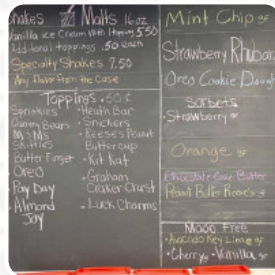 Shakes & Malts 16oz
Vanilla ice Cream with topping 5.50
Additional toppings .50 each
Specialty Shakes 7.50
Any Flavor from the Case
Toppings .50¢
Sprinkles
Gummy Bears
M&Ms
Skittles
Butter Finger
Oreo
Pay Day
Almond Joy
• Heath Bar
• Snickers
• Reese's Peanut Butter cup
• Kit Kat
• Graham Cracker Crust
• Luck Charms
Mint Chip gf
Strawberry Rhubar
Oreo Cookie Dough
Sorbets
• Strawberry gf
Orange gf
Chocolate Peanut Butter
Peanut Butter Reese's gf
Made Free
• Avocado Key Lime gf
• Cherry gf • Vanilla gf